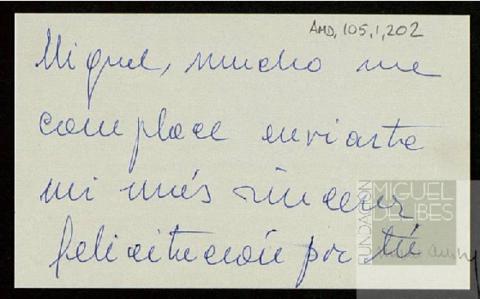 AMD, 105, 1, 202
Miguel, mucho me
complace enviarte
mi más sincera
felicitación por tú
FUNDACIÓN
MIGUEL
DELIBES